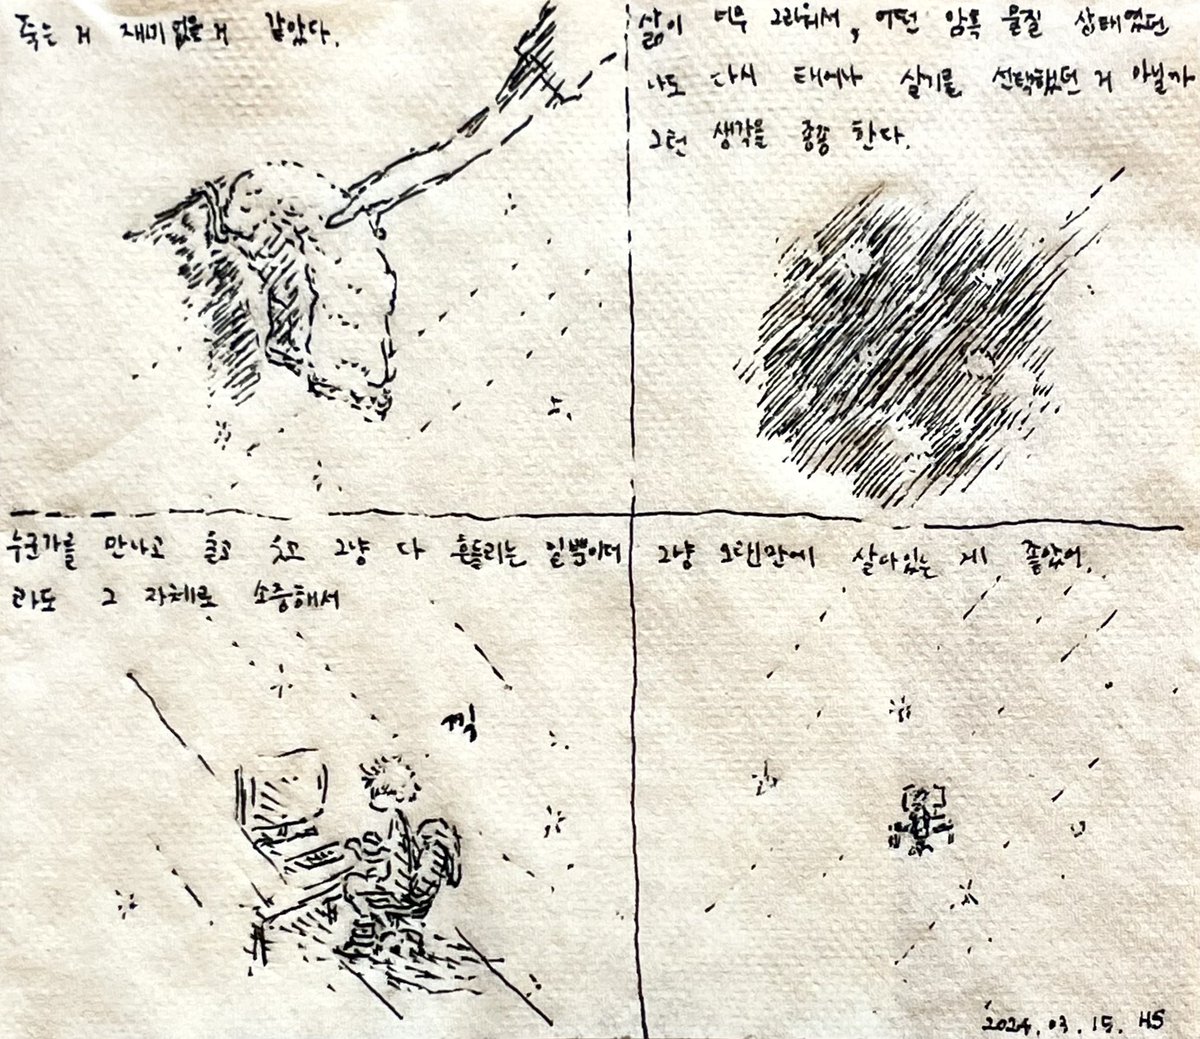 죽는 거 재미 없을 거 같았다.
삶이 너무 그리워서, 어떤 암흑 물질 상태였던
나도 다시 태어나 살기를 선택했던 거 아닐까
그런 생각을 종종 한다.
누군가를 만나고 울고 웃고 그냥 다 흔들리는 일뿐이더
라도 그 자체로 소중해서
찍
그냥 오랜만에 살아있는 게 좋았어.
2024.03.15. HS